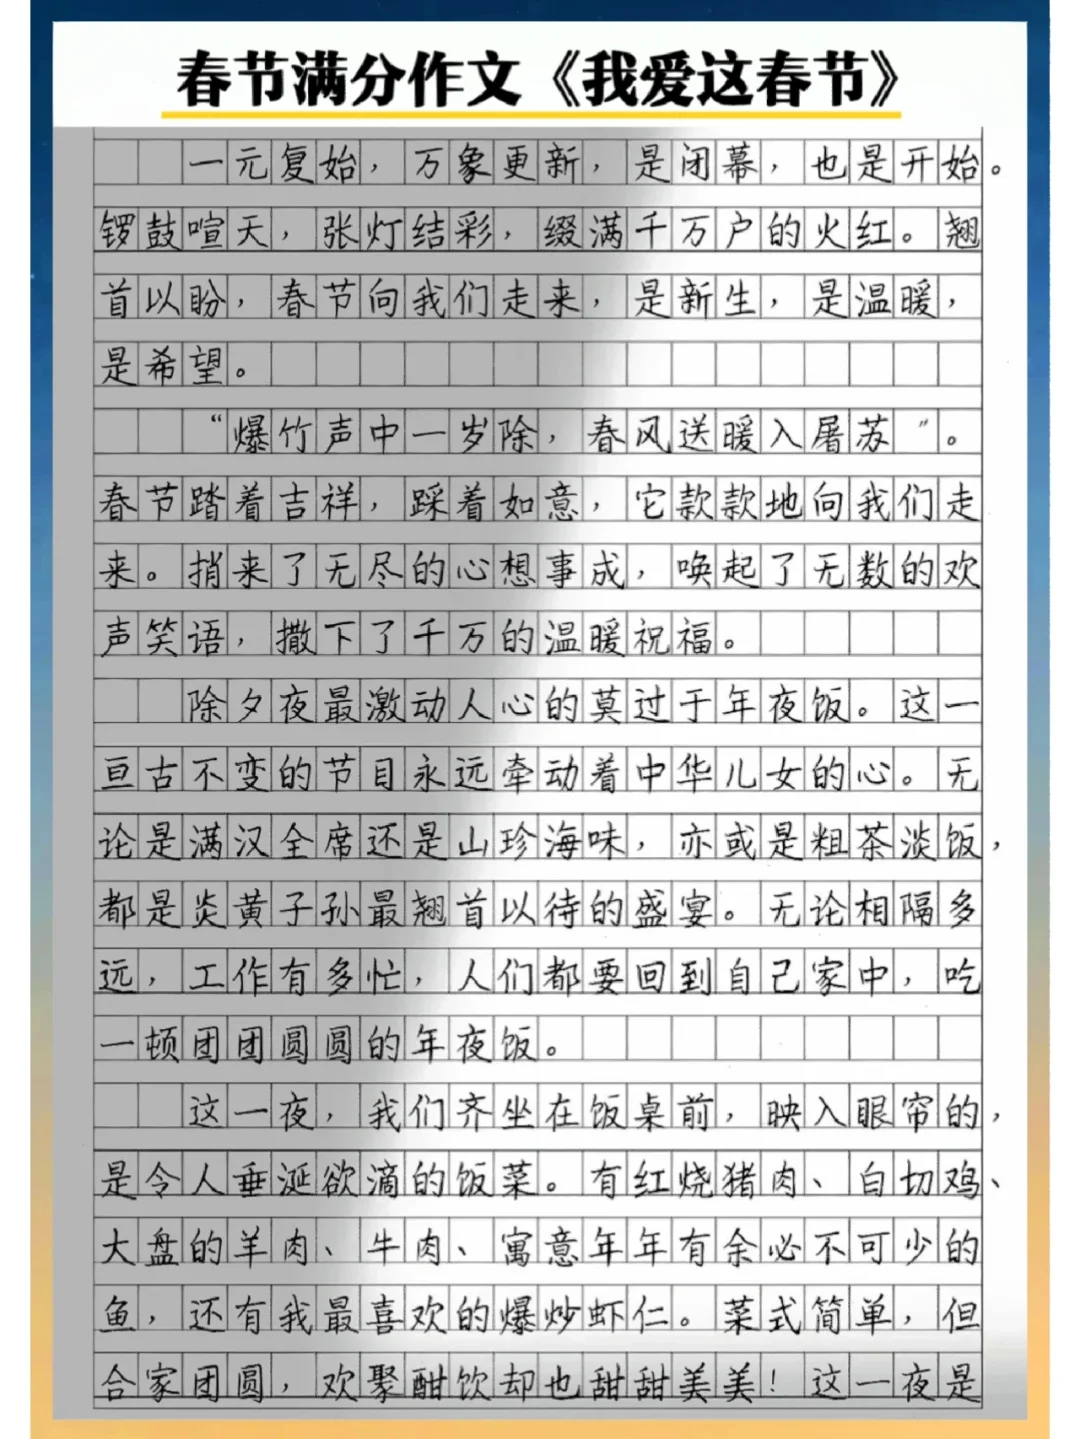 春节满分作文《我爱这春节》
一元复始，万象更新，是闭幕，也是开始。
锣鼓喧天，张灯结彩，缀满千万户的火红。翘
首以盼，春节向我们走来，是新生，是温暖，
是希望。
“爆竹声中一岁除，春风送暖入屠苏”。
春节踏着吉祥，踩着如意，它款款地向我们走
来。捎来了无尽的心想事成，唤起了无数的欢
声笑语，撒下了千万的温暖祝福。
除夕夜最激动人心的莫过于年夜饭。这一
亘古不变的节目永远牵动着中华儿女的心。无
论是满汉全席还是山珍海味，亦或是粗茶淡饭，
都是炎黄子孙最翘首以待的盛宴。无论相隔多
远，工作有多忙，人们都要回到自己家中，吃
一顿团团圆圆的年夜饭。
这一夜，我们齐坐在饭桌前，映入眼帘的，
是令人垂涎欲滴的饭菜。有红烧猪肉、白切鸡、
大盘的羊肉、牛肉、寓意年年有余必不可少的
鱼，还有我最喜欢的爆炒虾仁。菜式简单，但
合家团圆，欢聚酣饮却也甜甜美美！这一夜是